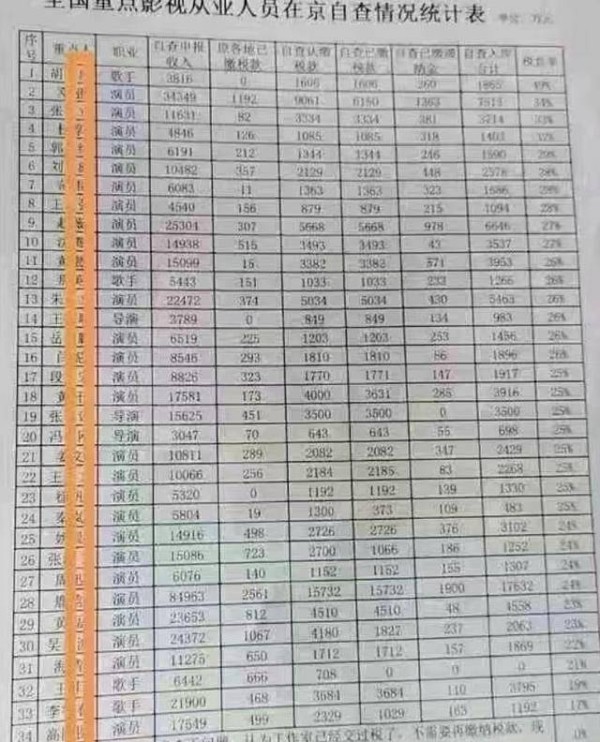 全国重点影视从业人员在京自查情况统计表 单位：万元
序号 重点人 职业 自查申报收入 原各地已缴税款 自查认缴税款 自查已缴税款 自查已缴滞纳金 自查入库合计 税负率
1 胡 歌手 3816 0 1606 1606 260 1865 49%
2 演员 34349 1192 9061 6150 1363 7513 34%
3 张 演员 11631 82 3334 3334 381 3714 33%
4 杜 演员 4846 126 1085 1085 318 1403
5 郭 演员 6191 212 1344 1344 246 1590 29%
6 刘 演员 10482 357 2129 2129 448 2578 28%
7 演员 6083 11 1363 1363 323 1686 28%
8 王 演员 4540 156 879 879 215 1094 28%
9 赵 演员 25304 307 5668 5668 978 6646 27%
10 沈 演员 14938 515 3493 3493 43 3537 27%
11 黄 演员 15099 15 3382 3382 571 3953 26%
12 歌手 5443 151 1033 1033 233 1266 26%
13 朱 演员 22472 374 5034 5034 430 5463 26%
14 王 导演 3789 0 849 849 134 983 26%
15 岳 演员 6519 225 1203 1203 253 1456 26%
16 闫 演员 8546 293 1810 1810 86 1896 26%
17 段 演员 8826 323 1770 1771 147 1917 25%
18 黄 演员 17581 173 4000 3631 285 3916 25%
19 张 导演 15625 451 3500 3500 0 3500 25%
20 冯 导演 3047 70 643 643 55 698 25%
21 姜 演员 10811 289 2082 2082 347 2429 25%
22 王 演员 10066 256 2184 2185 83 2268 25%
23 演员 5320 0 1192 1192 139 1330 25%
24 秦 演员 5804 19 1300 373 109 483 25%
25 姚 演员 14916 498 2726 2726 376 3102 24%
26 张 演员 15086 723 2700 1066 186 1252 24%
27 周 演员 6076 140 1152 1152 155 1307 24%
28 演员 84963 2561 15732 15732 1900 17632 24%
29 黄 演员 23653 812 4510 4510 48 4558 23%
30 吴 演员 24372 1067 4180 1827 237 2063 23%
31 演员 11275 650 1712 1712 157 1869 22%
32 王 歌手 6442 666 708 0 21%
33 李 歌手 21900 468 3684 3684 110 3795 19%
34 高 演员 17549 499 2329 1029 163 1192 17%
问题，认为工作室已经交过税了，不需要再缴纳税款，现